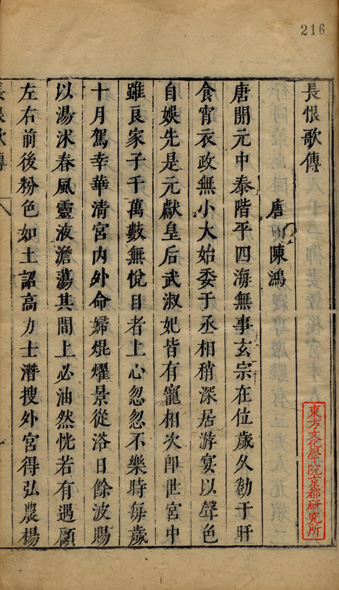 216
長恨歌傳
唐 陳鴻
唐開元中泰階平四海無事玄宗在位歲久勌于旰
食宵衣政無小大始委于丞相稍深居游宴以聲色
自娛先是元獻皇后武淑妃皆有寵相次卽世宮中
雖良家子千萬數無悅目者上心忽忽不樂時每歲
十月駕幸華清宮內外命婦焜燿景從浴日餘波賜
以湯沐春風靈液澹蕩其間上必油然恍若有遇顧
左右前後粉色如土詔高力士潛搜外宮得弘農楊
長恨歌傳
東方文化學院京都研究所